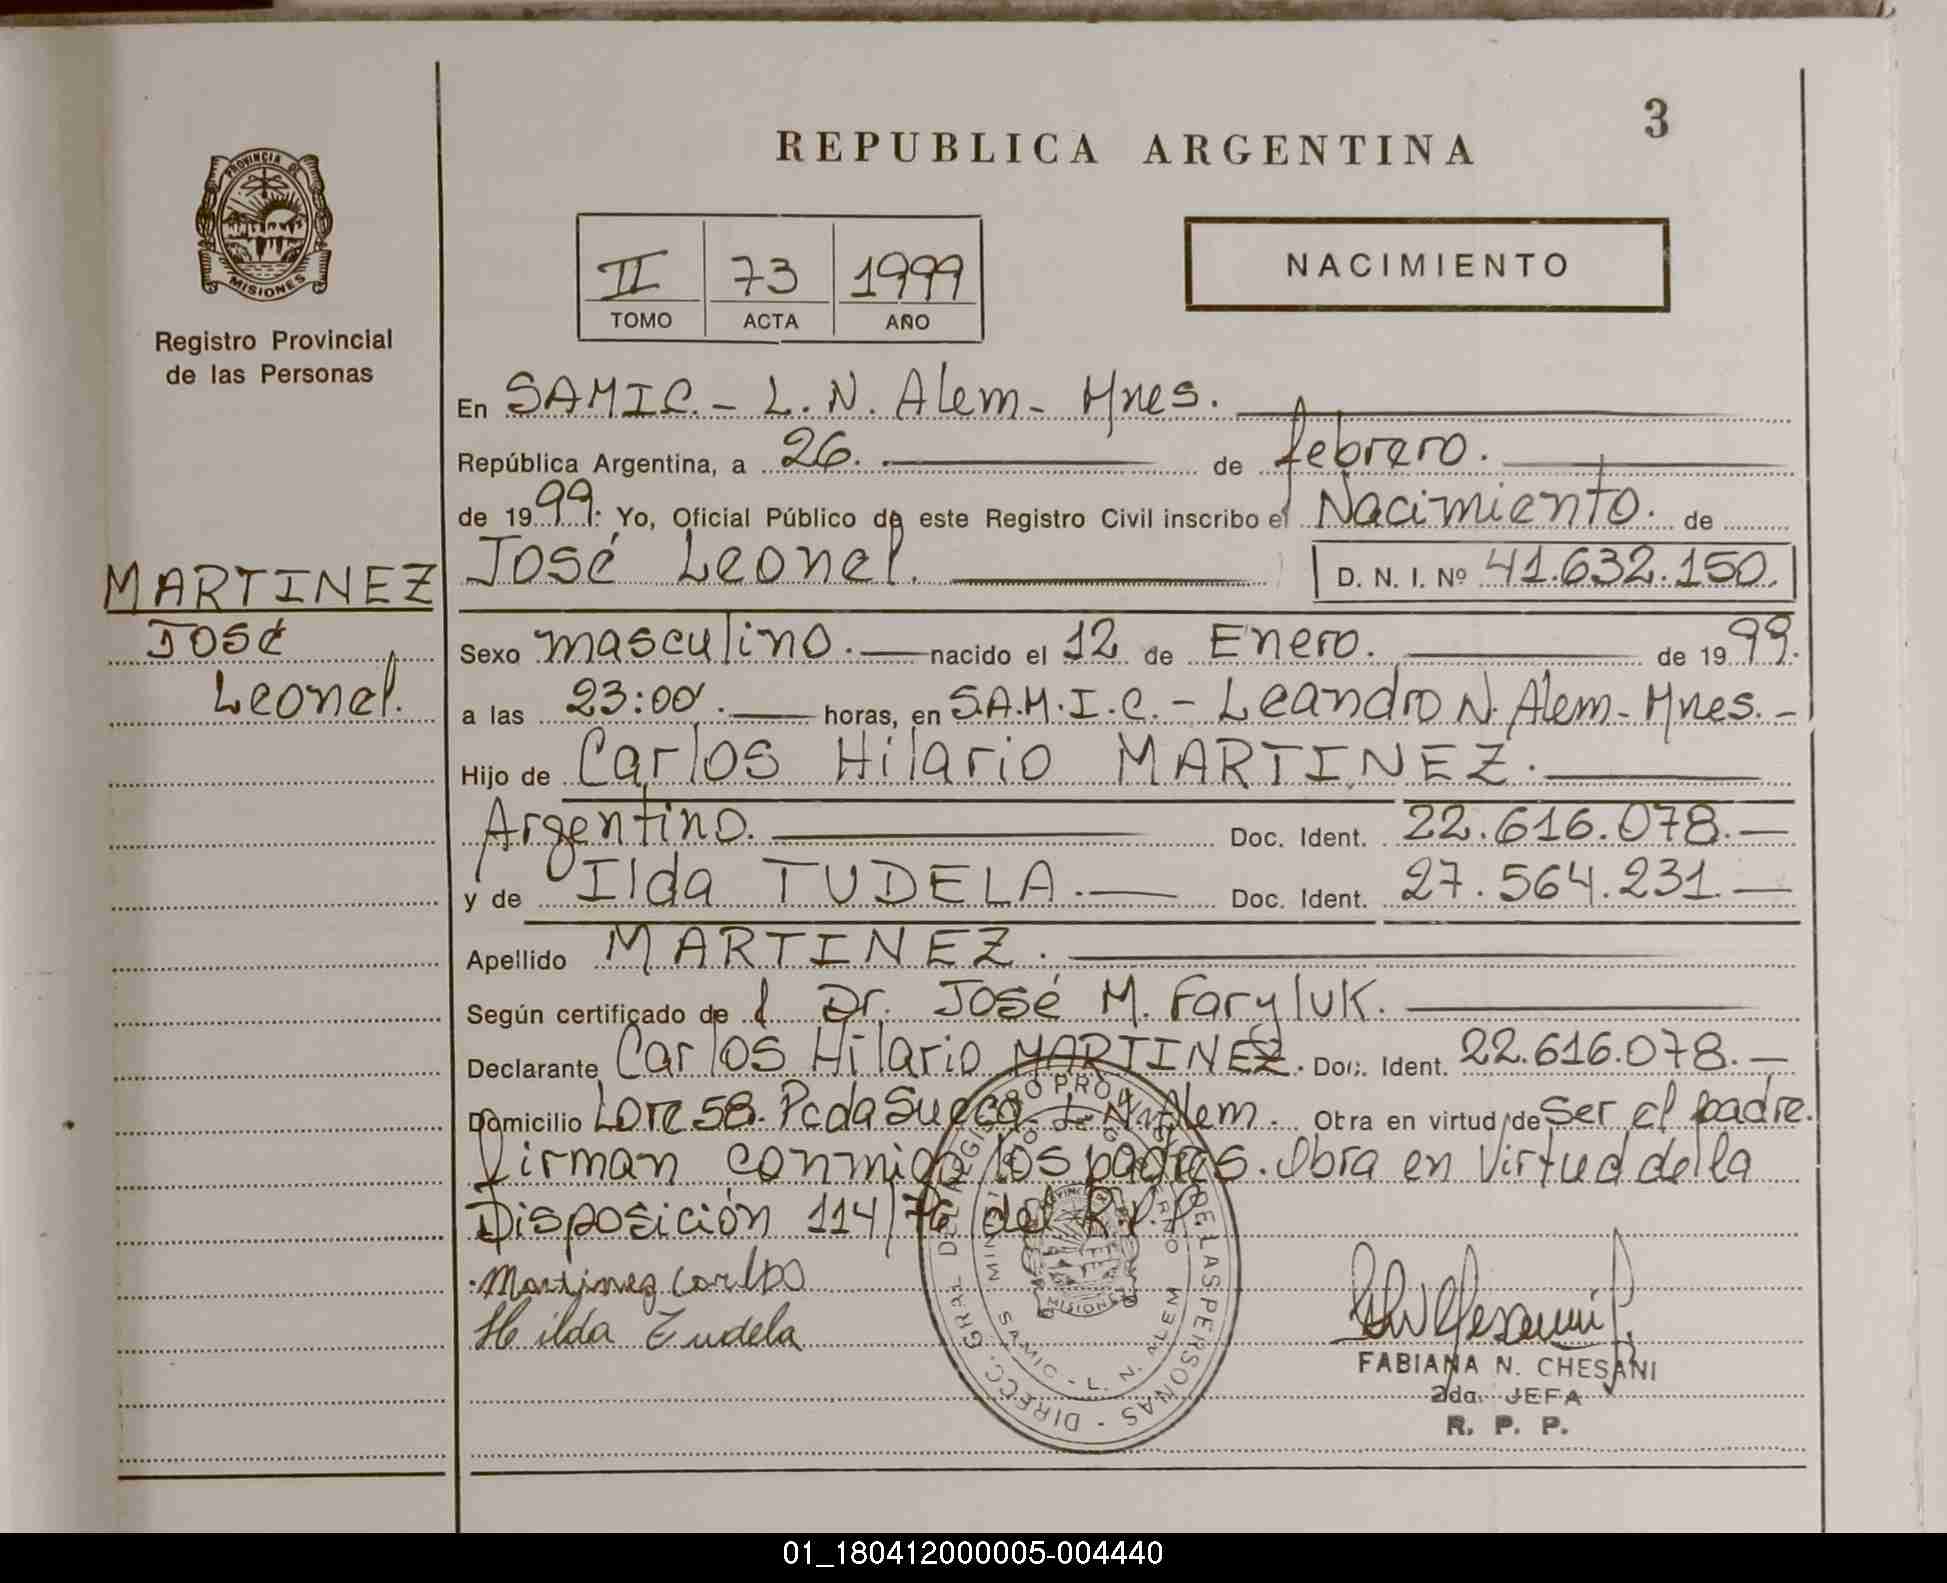 3
REPUBLICA ARGENTINA
PROVINCIA DE
MISIONES
Registro Provincial
de las Personas
II 73 1999
TOMO ACTA AÑO
NACIMIENTO
En SAMIC.- L. N. Alem- Mnes.
República Argentina, a 26. de febrero.
de 1999: Yo, Oficial Público de este Registro Civil inscribo el Nacimiento. de
José Leonel. D. N. I. Nº 41.632.150.
MARTINEZ
José
Leonel.
Sexo masculino. nacido el 12 de Enero. de 1999.
a las 23:00. horas, en S.A.M.I.C.- Leandro N. Alem- Mnes.-
Hijo de Carlos Hilario MARTINEZ.
Argentino. Doc. Ident. 22.616.078.-
y de Ilda TUDELA.- Doc. Ident. 27.564.231.-
Apellido MARTINEZ.
Según certificado de l Dr. José M. Faryluk.
Declarante Carlos Hilario MARTINEZ. Doc. Ident. 22.616.078.-
Domicilio Lote 58. Pcda Sueca. L. N. Alem. Obra en virtud de Ser el padre.
firman conmigo los padres. Obra en Virtud de la
Disposición 114/76 del R.P.P
Martinez Carlos
Hilda Tudela
DIRECC. GRAL DEL REGISTRO PROVINCIAL DE LAS PERSONAS
MINISTERIO DE GOBIERNO
SAMIC - L. N. ALEM
MISIONES
FABIANA N. CHESANI
2da. JEFA
R. P. P.
01_180412000005-004440